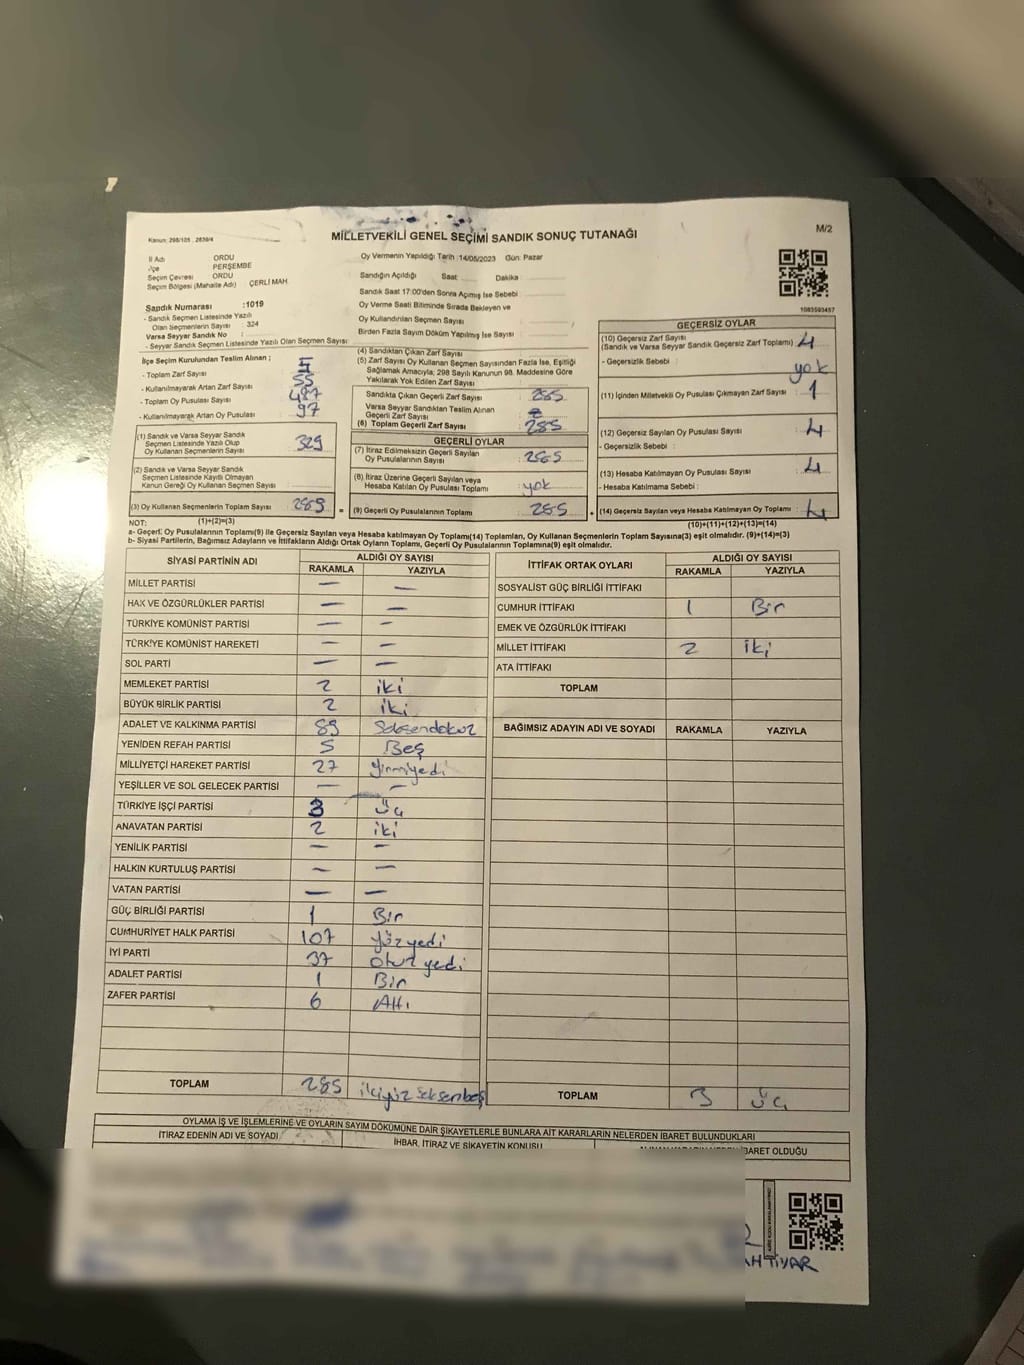 MİLLETVEKİLİ GENEL SEÇİMİ SANDIK SONUÇ TUTANAĞI
M/2
Kanun: 298/105 , 2839/4
İl Adı ORDU
İlçe PERŞEMBE
Seçim Çevresi ORDU
Seçim Bölgesi (Mahalle Adı) ÇERLİ MAH
Sandık Numarası :1019
- Sandık Seçmen Listesinde Yazılı
Olan Seçmenlerin Sayısı : 324
Varsa Seyyar Sandık No :
- Seyyar Sandık Seçmen Listesinde Yazılı Olan Seçmen Sayısı:
Oy Vermenin Yapıldığı Tarih :14/05/2023 Gün: Pazar
Sandığın Açıldığı Saat Dakika :
Sandık Saat 17:00'den Sonra Açımış İse Sebebi
Oy Verme Saati Bitiminde Sırada Bekleyen ve
Oy Kullandırılan Seçmen Sayısı :
Birden Fazla Sayım Döküm Yapılmış İse Sayısı :
1083593457
İlçe Seçim Kurulundan Teslim Alınan ;
- Toplam Zarf Sayısı
- Kullanılmayarak Artan Zarf Sayısı 55
- Toplam Oy Pusulası Sayısı 487
- Kullanılmayarak Artan Oy Pusulası 97
(1) Sandık ve Varsa Seyyar Sandık
Seçmen Listesinde Yazılı Olup
Oy Kullanan Seçmenlerin Sayısı 329
(2) Sandık ve Varsa Seyyar Sandık
Seçmen Listesinde Kayıtlı Olmayan
Kanun Gereği Oy Kullanan Seçmen Sayısı :
(3) Oy Kullanan Seçmenlerin Toplam Sayısı 289 =
(1)+(2)=(3)
(4) Sandıktan Çıkan Zarf Sayısı :
(5) Zarf Sayısı Oy Kullanan Seçmen Sayısından Fazla İse, Eşitliği
Sağlamak Amacıyla; 298 Sayılı Kanunun 98. Maddesine Göre
Yakılarak Yok Edilen Zarf Sayısı :
Sandıkta Çıkan Geçerli Zarf Sayısı : 285
Varsa Seyyar Sandıktan Teslim Alınan
Geçerli Zarf Sayısı :
(6) Toplam Geçerli Zarf Sayısı : 285
GEÇERLİ OYLAR
(7) İtiraz Edilmeksizin Geçerli Sayılan
Oy Pusulalarının Sayısı : 285
(8) İtiraz Üzerine Geçerli Sayılan veya
Hesaba Katılan Oy Pusulası Toplamı : yok
(9) Geçerli Oy Pusulalarının Toplamı : 285 +
GEÇERSİZ OYLAR
(10) Geçersiz Zarf Sayısı
(Sandık ve Varsa Seyyar Sandık Geçersiz Zarf Toplamı) : 4
- Geçersizlik Sebebi : yok
(11) İçinden Milletvekili Oy Pusulası Çıkmayan Zarf Sayısı : 1
(12) Geçersiz Sayılan Oy Pusulası Sayısı : 4
- Geçersizlik Sebebi :
(13) Hesaba Katılmayan Oy Pusulası Sayısı : 4
- Hesaba Katılmama Sebebi :
(14) Geçersiz Sayılan veya Hesaba Katılmayan Oy Toplamı : 4
(10)+(11)+(12)+(13)=(14)
NOT:
a- Geçerli Oy Pusulalarının Toplamı(9) ile Geçersiz Sayılan veya Hesaba Katılmayan Oy Toplamı(14) Toplamları, Oy Kullanan Seçmenlerin Toplam Sayısına(3) eşit olmalıdır. (9)+(14)=(3)
b- Siyasi Partilerin, Bağımsız Adayların ve İttifakların Aldığı Ortak Oyların Toplamı, Geçerli Oy Pusulalarının Toplamına(9) eşit olmalıdır.
SİYASİ PARTİNİN ADI ALDIĞI OY SAYISI
RAKAMLA YAZIYLA
MİLLET PARTİSİ — —
HAK VE ÖZGÜRLÜKLER PARTİSİ — —
TÜRKİYE KOMÜNİST PARTİSİ — —
TÜRKİYE KOMÜNİST HAREKETİ — —
SOL PARTİ — —
MEMLEKET PARTİSİ 2 iki
BÜYÜK BİRLİK PARTİSİ 2 iki
ADALET VE KALKINMA PARTİSİ 89 Seksendokuz
YENİDEN REFAH PARTİSİ 5 Beş
MİLLİYETÇİ HAREKET PARTİSİ 27 yirmiyedi
YEŞİLLER VE SOL GELECEK PARTİSİ — —
TÜRKİYE İŞÇİ PARTİSİ 3 üç
ANAVATAN PARTİSİ 2 iki
YENİLİK PARTİSİ — —
HALKIN KURTULUŞ PARTİSİ — —
VATAN PARTİSİ — —
GÜÇ BİRLİĞİ PARTİSİ 1 Bir
CUMHURİYET HALK PARTİSİ 107 yüz yedi
İYİ PARTİ 37 otuz yedi
ADALET PARTİSİ 1 Bir
ZAFER PARTİSİ 6 Altı
TOPLAM 285 ikiyüz seksenbeş
İTTİFAK ORTAK OYLARI ALDIĞI OY SAYISI
RAKAMLA YAZIYLA
SOSYALİST GÜÇ BİRLİĞİ İTTİFAKI
CUMHUR İTTİFAKI 1 Bir
EMEK VE ÖZGÜRLÜK İTTİFAKI
MİLLET İTTİFAKI 2 iki
ATA İTTİFAKI
TOPLAM
BAĞIMSIZ ADAYIN ADI VE SOYADI RAKAMLA YAZIYLA
TOPLAM 3 üç
OYLAMA İŞ VE İŞLEMLERİNE VE OYLARIN SAYIM DÖKÜMÜNE DAİR ŞİKAYETLERLE BUNLARA AİT KARARLARIN NELERDEN İBARET BULUNDUKLARI
İTİRAZ EDENİN ADI VE SOYADI
İHBAR, İTİRAZ VE ŞİKAYETİN KONUSU
İBARET OLDUĞU